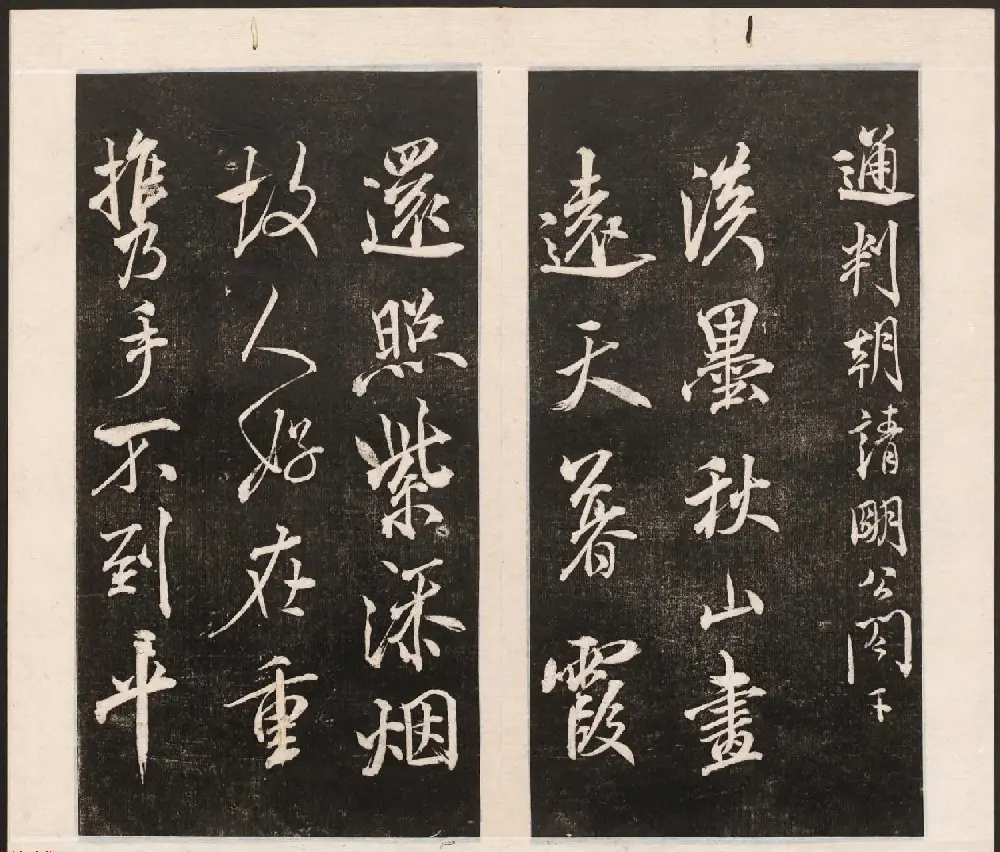 通判朝請明公閣下
淡墨秋山畫
遠天暮霞
還照紫添烟
故人好在重
攜手不到平